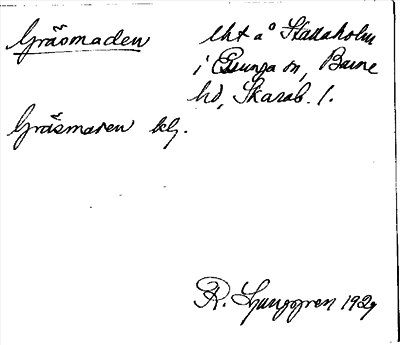 Gräsmaden lht å Stallaholm
i Essunga sn, Barne
hd, Skarab. l.
Gräsmaren klg.
R. Ljunggren 1929